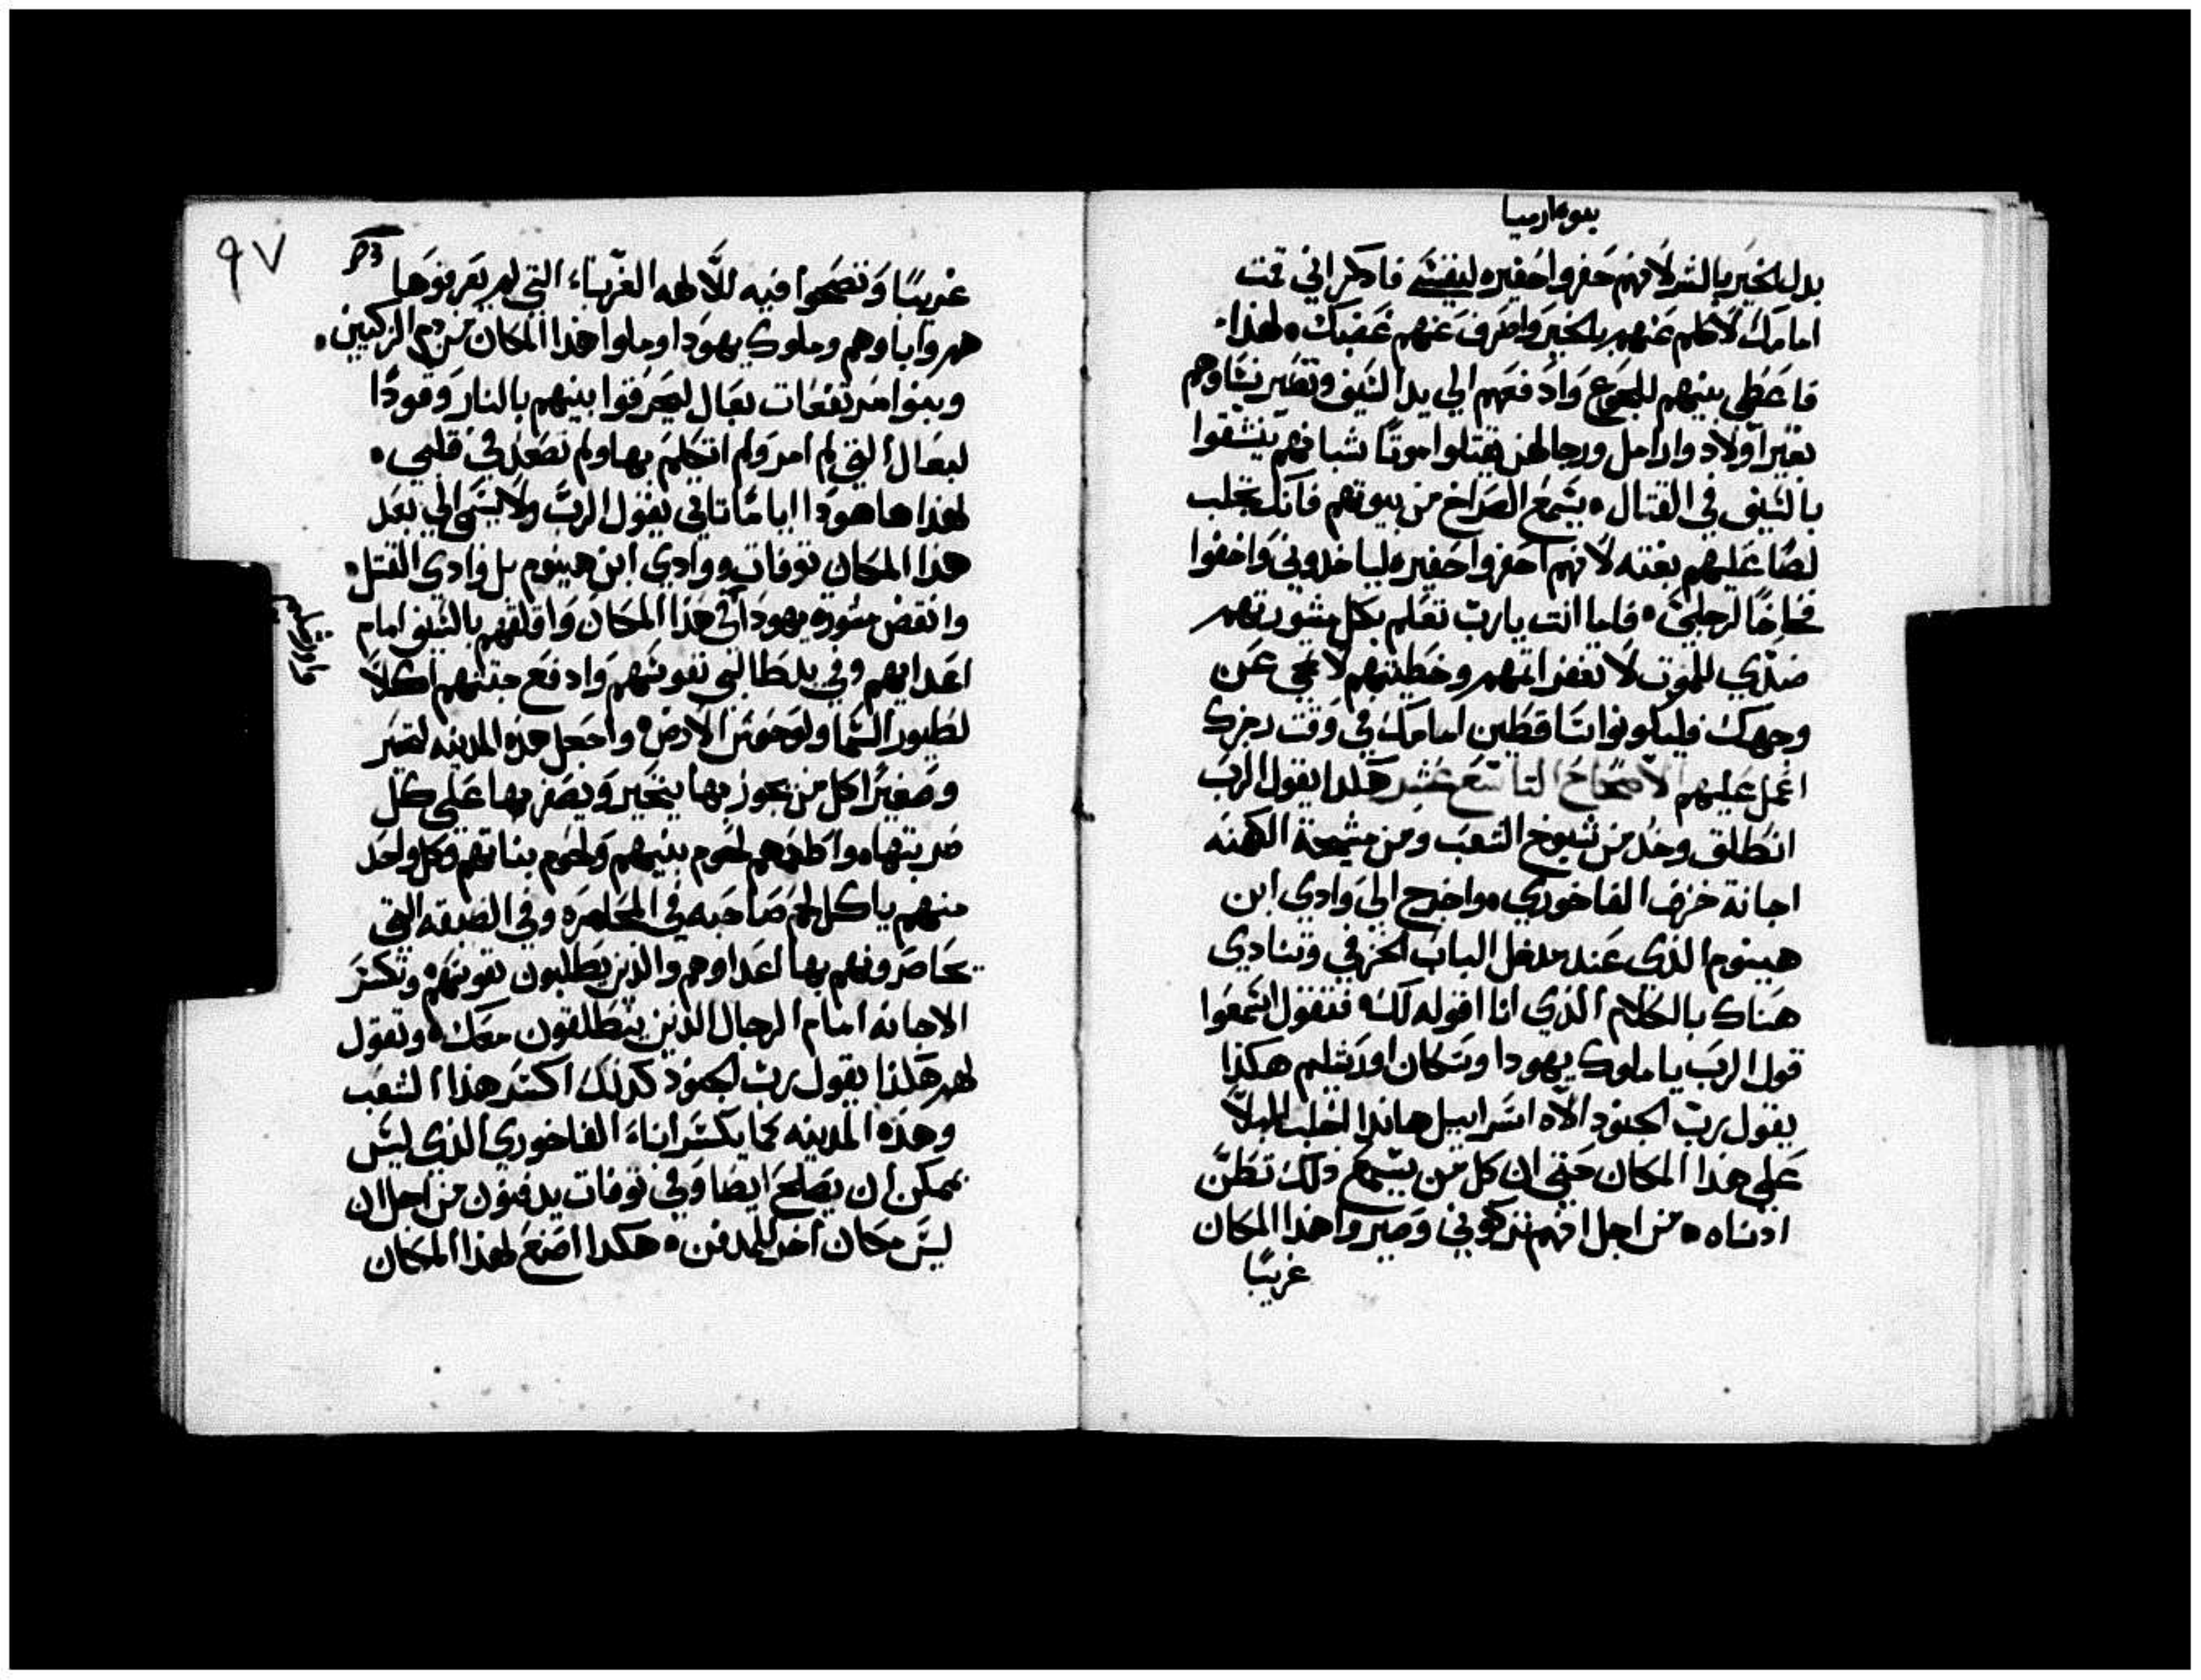 نبوه ارميا
بدل الخير بالشر لانهم حفروا حفيره لنفسي فادكر اني قمت
امامك لاكلم عنهم بالخير واصرف عنهم غضبك. لهذا
فاعطي بنيهم للجوع وادفعهم الي يد السيف وتصير نساوهم
بغير اولاد وارامل ورجالهن يقتلوا موتًا شبانهم ينشقوا
بالسيف في القتال. يسمع الصراخ من بيوتهم فانك تجلب
لصًا عليهم بغته لانهم احفروا حفيره لياخدوني واخفوا
فخاخًا لرجلي. فاما انت يارب تعلم بكل مشورتهم
ضدي للموت لا تغفر اتمهم وخطيتهم لا تمحي عن
وجهك فليكونوا ساقطين امامك في وقت رجزك
اعمل عليهم الاصحاح التاسع عشر هكدا يقول الرب
انطلق وخد من شيوخ الشعب ومن مشيخة الكهنه
اجانة خزف الفاخوري. واخرج الي وادي ابن
هينوم الذي عند مدخل الباب الخزفي وتنادي
هناك بالكلام الذي انا اقوله لك. فتقول اسمعوا
قول الرب يا ملوك يهودا وسكان اورشليم هكذا
يقول رب الجنود الاه اسراييل هاندا اجلب البلاً
علي هدا المكان حتي ان كل من يسمع ذلك تطنّ
ادناه. من اجل انهم تركوني وصيروا هذا المكان
غريبًا
٩٧
غريبًا وتضحوا فيه للالهه الغربآء التي لم يعرفوها
هم واباوهم وملوك يهودا وملوا هذا المكان من دم الزكيين.
وبنوا مرتفعات بعال ليحرقوا بنيهم بالنار وقودًا
لبعال التي لم امر ولم اتكلم بها ولم تصعد في قلبي.
لهذا ها هودا اياما تاتي يقول الرب ولا يسمي الي بعد
هذا المكان توفات ووادي ابن هينوم بل وادي القتل.
وانقض مشوره يهودا في هذا المكان واقلقهم بالسيف امام
اعدايهم وفي يد الطالبي نفوسهم وادفع جثتهم اكلاً
لطيور السما ولوحوش الارض. واجعل هذه المدينه لتحير
وصفيرًا كل من يجوز بها يتحير ويصفر بها علي كل
ضربتها. واطعمهم لحوم بنيهم ولحوم بناتهم وكل واحد
منهم ياكل لحم صاحبه في المحاصره وفي الضيقه التي
يحاصرونهم بها اعداوهم والذين يطلبون نفوسهم. وتكسر
الاجانه امام الرجال الذين ينطلقون معك. وتقول
لهم هكذا يقول رب الجنود كذلك اكسر هذا الشعب
وهذه المدينه كما يكسر اناء الفاخوري الذي ليس
يمكن ان يصلح ايضا وفي توفات يدفنون من اجل ان
ليس مكان اخر للمدفن. هكدا اصنع لهذا المكان